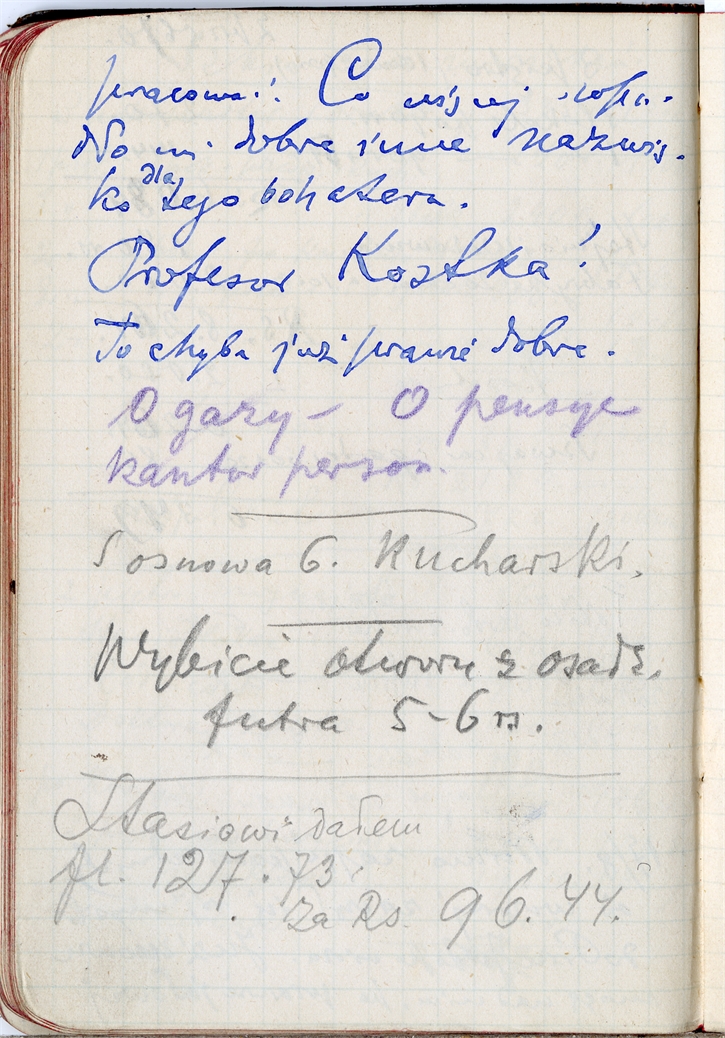 pracować. Co więcej wpa-
dło mi dobre inne nazwis-
ko dla tego bohatera.
Profesor Kostka!
To chyba już prawie dobre.
O gazy — O pensye
kantor person.
Sosnowa 6. Kucharski.
Wybicie otworu z osadz.
futra 5-6 rs.
Stasiowi dałem
fl. 127.73
za Rs. 96.44.